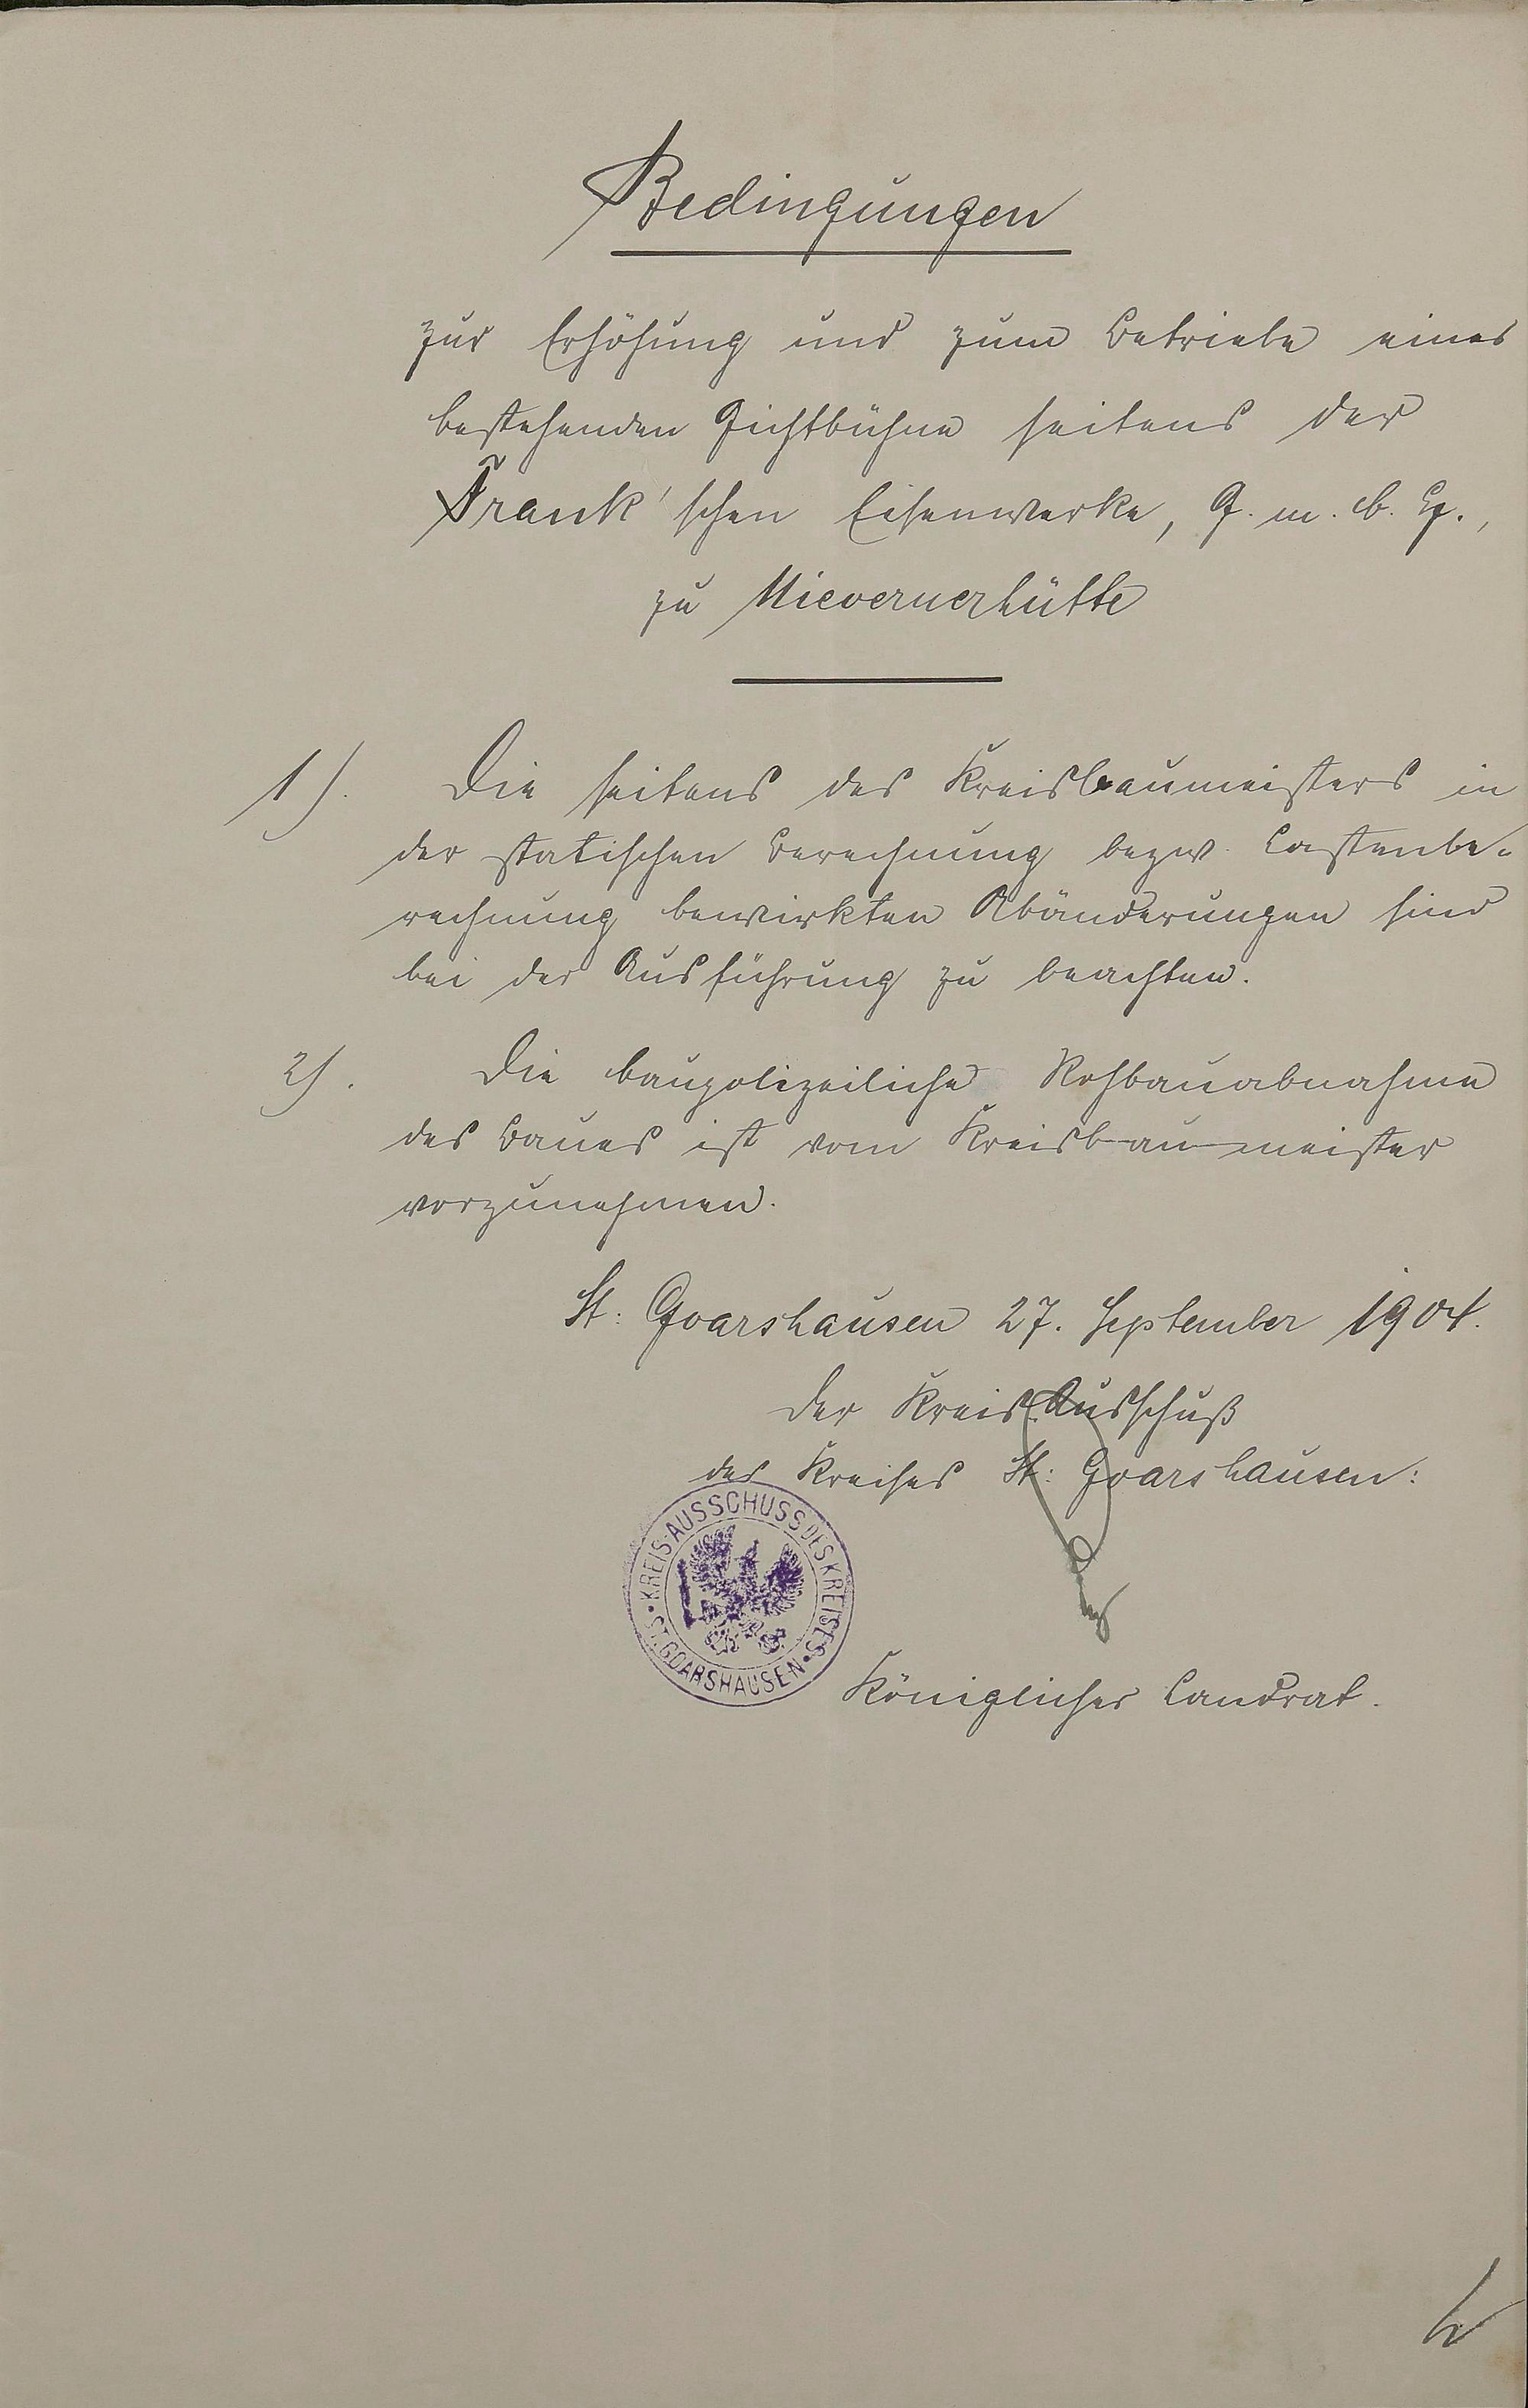 Bedingungen
zur Erhöhung und zum Betriebe einer
bestehenden Gichtbühne seitens der
Frank'schen Eisenwerke, G. m. b. H.,
zu Nievernerhütte
1). Die seitens des Kreisbaumeisters in
der statischen Berechnung bezw. Lastenbe-
rechnung bewirkten Abänderungen sind
bei der Ausführung zu beachten.
2). Die baupolizeiliche Rohbauabnahme
des Baues ist vom Kreisbaumeister
vorzunehmen.
St. Goarshausen 27. September 1904.
Der Kreis-Ausschuß
des Kreises St. Goarshausen:
KREIS-AUSSCHUSS DES KREISES
ST. GOARSHAUSEN
Königlicher Landrat.